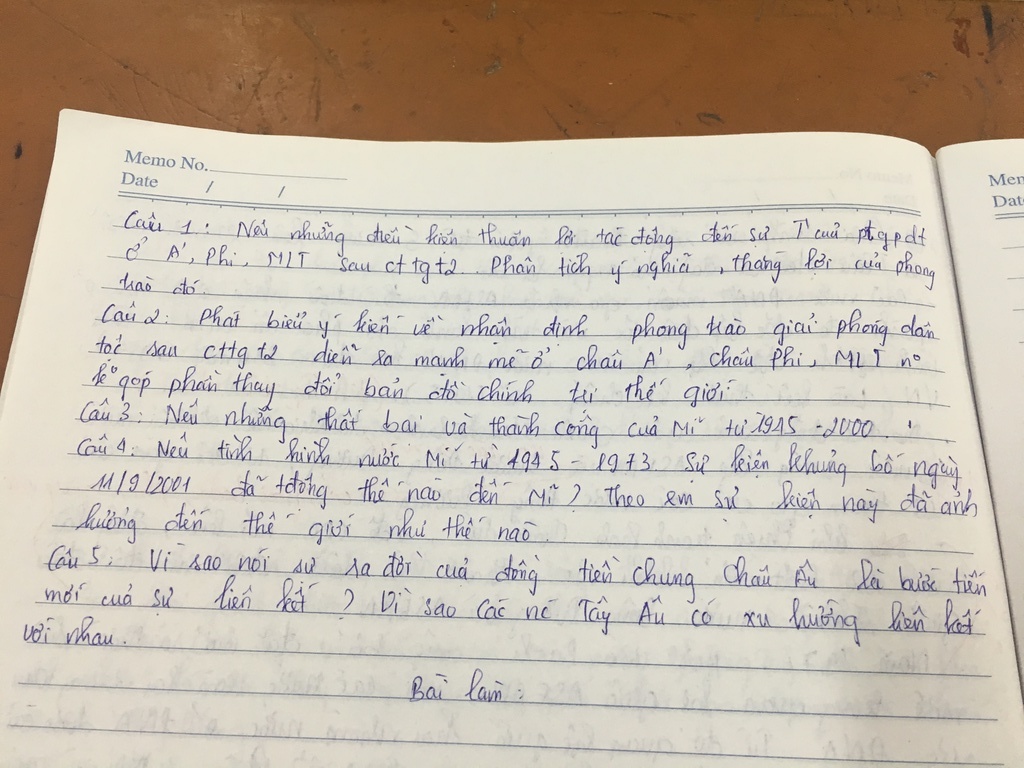 Memo No.
Date / /
Câu 1: Nêu những điều kiện thuận lợi tác động đến sự T của ptgpdt
ở Á, Phi, MLT sau cttgt2. Phân tích ý nghĩa, thắng lợi của phong
trào đó
Câu 2: Phát biểu ý kiến về nhận định phong trào giải phóng dân
tộc sau cttgt2 diễn ra mạnh mẽ ở châu Á, châu Phi, MLT nó
góp phần thay đổi bản đồ chính trị thế giới.
Câu 3: Nêu những thất bại và thành công của Mĩ từ 1945 - 2000.
Câu 4: Nêu tình hình nước Mĩ từ 1945 - 1973 Sự kiện khủng bố ngày
11/9/2001 đã tđộng thế nào đến Mĩ? Theo em sự kiện này đã ảnh
hưởng đến thế giới như thế nào.
Câu 5: Vì sao nói sự ra đời của đồng tiền chung Châu Âu là bước tiến
mới của sự liên kết? Vì sao các nc Tây Âu có xu hướng liên kết
với nhau.
Bài làm:
Mem
Date